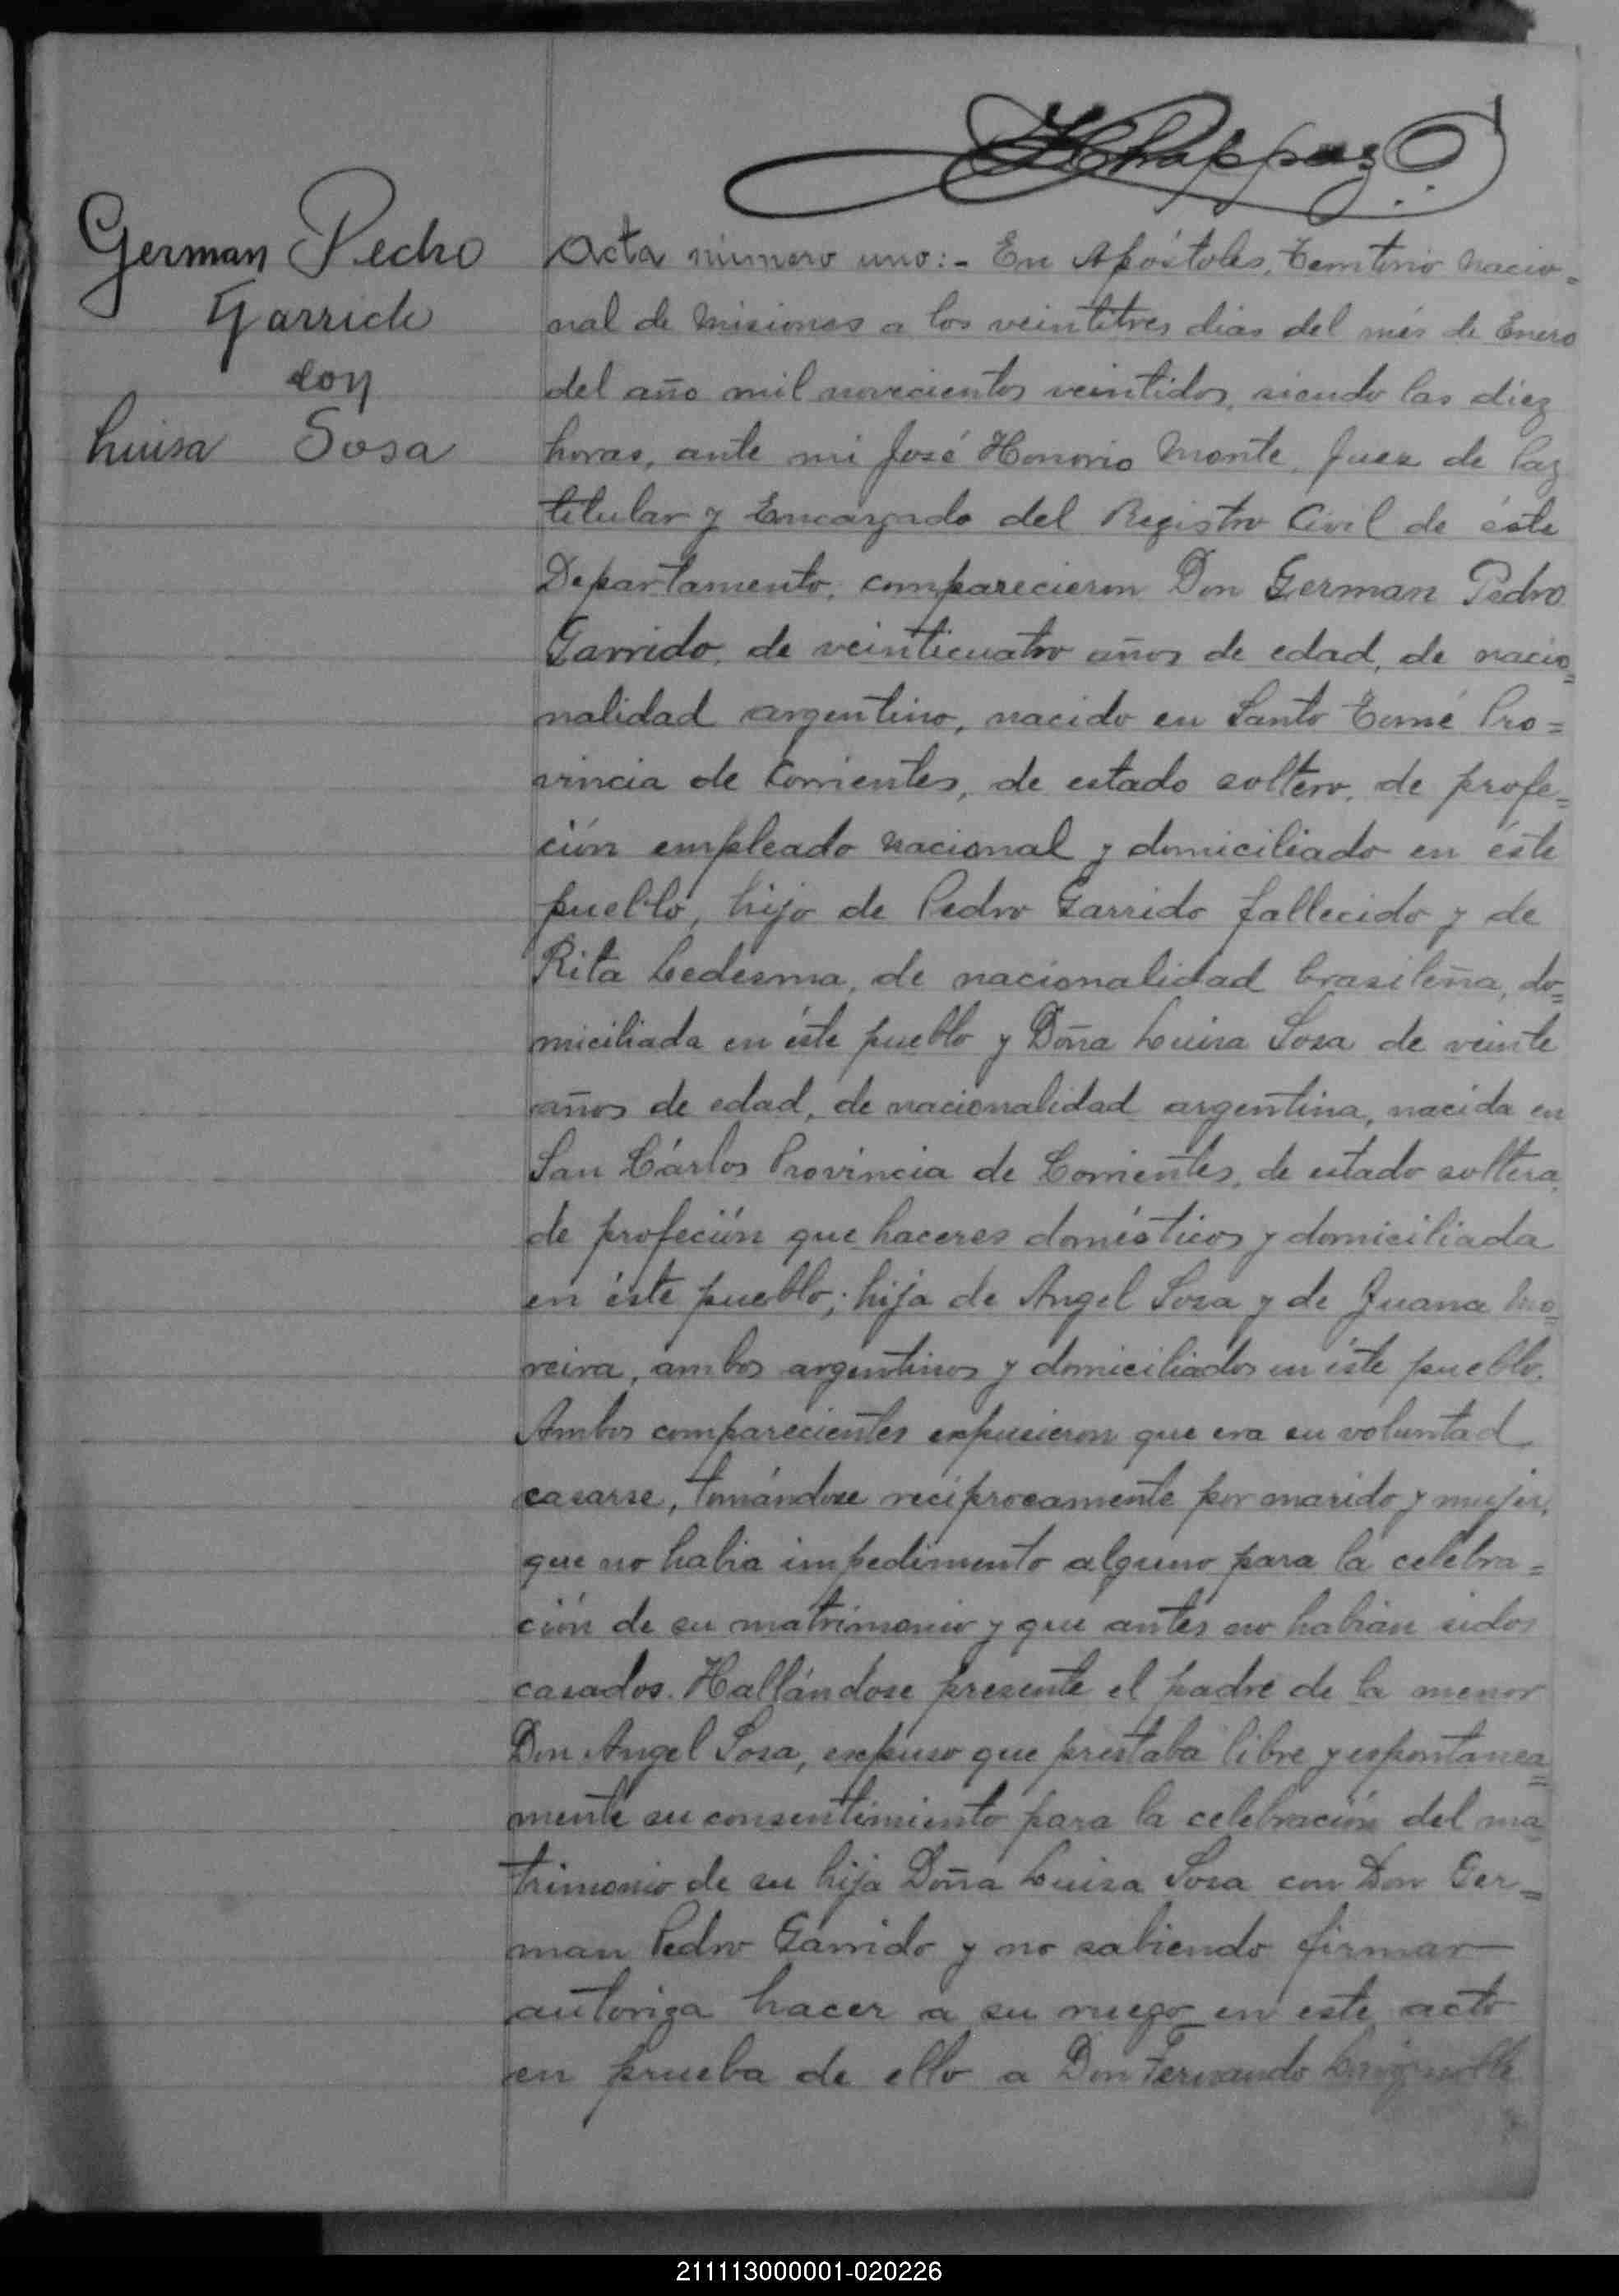 HChappuz
German Pedro
Garrido
con
Luisa Sosa
Acta número uno:- En Apóstoles, Territorio Nacio-
nal de Misiones a los veintitres dias del més de Enero
del año mil novecientos veintidos, siendo las diez
horas, ante mi José Honorio Monte, Juez de Paz
titular y Encargado del Registro Civil de éste
Departamento, comparecieron Don German Pedro
Garrido, de veinticuatro años de edad, de nacio=
nalidad argentino, nacido en Santo Tomé Pro=
vincia de Corrientes, de estado soltero, de profe=
ción empleado nacional y domiciliado en éste
pueblo, hijo de Pedro Garrido fallecido y de
Rita Ledesma, de nacionalidad brasileña, do=
miciliada en éste pueblo y Doña Luisa Sosa de veinte
años de edad, de nacionalidad argentina, nacida en
San Cárlos Provincia de Corrientes, de estado soltera,
de profeción que haceres domésticos y domiciliada
en éste pueblo; hija de Angel Sosa y de Juana Mo=
reira, ambos argentinos y domiciliados en éste pueblo.
Ambos comparecientes expusieron que era su voluntad
casarse, tomándose reciprocamente por marido y mujer,
que no habia impedimento alguno para la celebra=
ción de su matrimonio y que antes no habian sidos
casados. Hallándose presente el padre de la menor
Don Angel Sosa, expuso que prestaba libre y espontanea=
mente su consentimiento para la celebración del ma=
trimonio de su hija Doña Luisa Sosa con Don Ger=
man Pedro Garrido y no sabiendo firmar
autoriza hacer a su ruego en este acto
en prueba de ello a Don Fernando
211113000001-020226